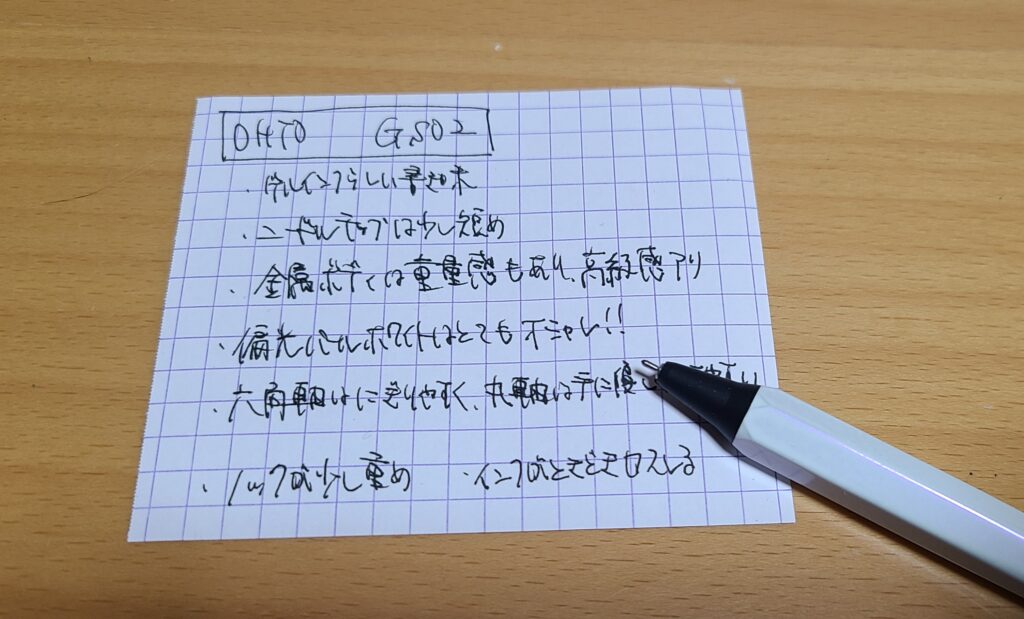 OHTO GS02
・ゲルインクらしい書き味
・ニードルチップは少し短め
・金属ボディは重量感もあり、高級感アリ
・偏光パールホワイトはとてもオシャレ!!
・六角軸はにぎりやすく、丸軸は手に優し
・ノックが少し重め ・インクがときどきカスレる